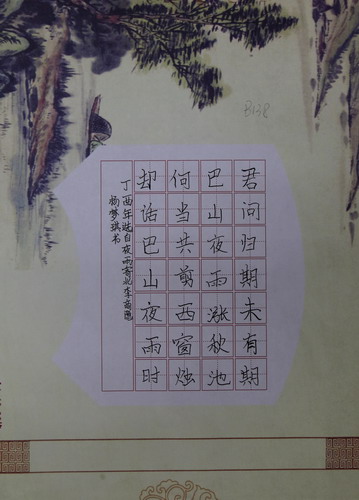 君问归期未有期
巴山夜雨涨秋池
何当共剪西窗烛
却话巴山夜雨时
丁酉年选自夜雨寄北李商隐
杨梦琪书
B132